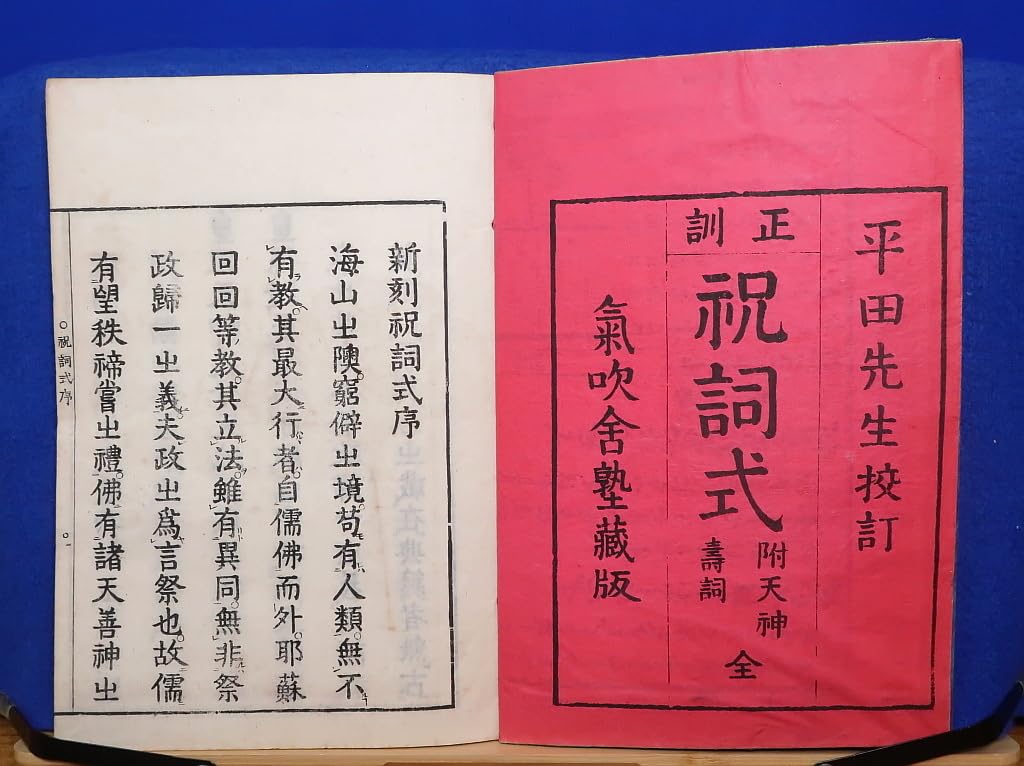 平田先生挍訂
正訓
祝詞式
附天神
壽詞
全
氣吹舍塾藏版
新刻祝詞式序
海山㞢隩。窮僻㞢境。苟有人類。無不
有教。其最大行者。自儒佛而外。耶蘇
回回等教。其立法。雖有異同。無非祭
政歸一㞢義。夫政㞢爲言祭也。故儒
有望秩禘嘗㞢禮。佛有諸天善神㞢
○祝詞式序